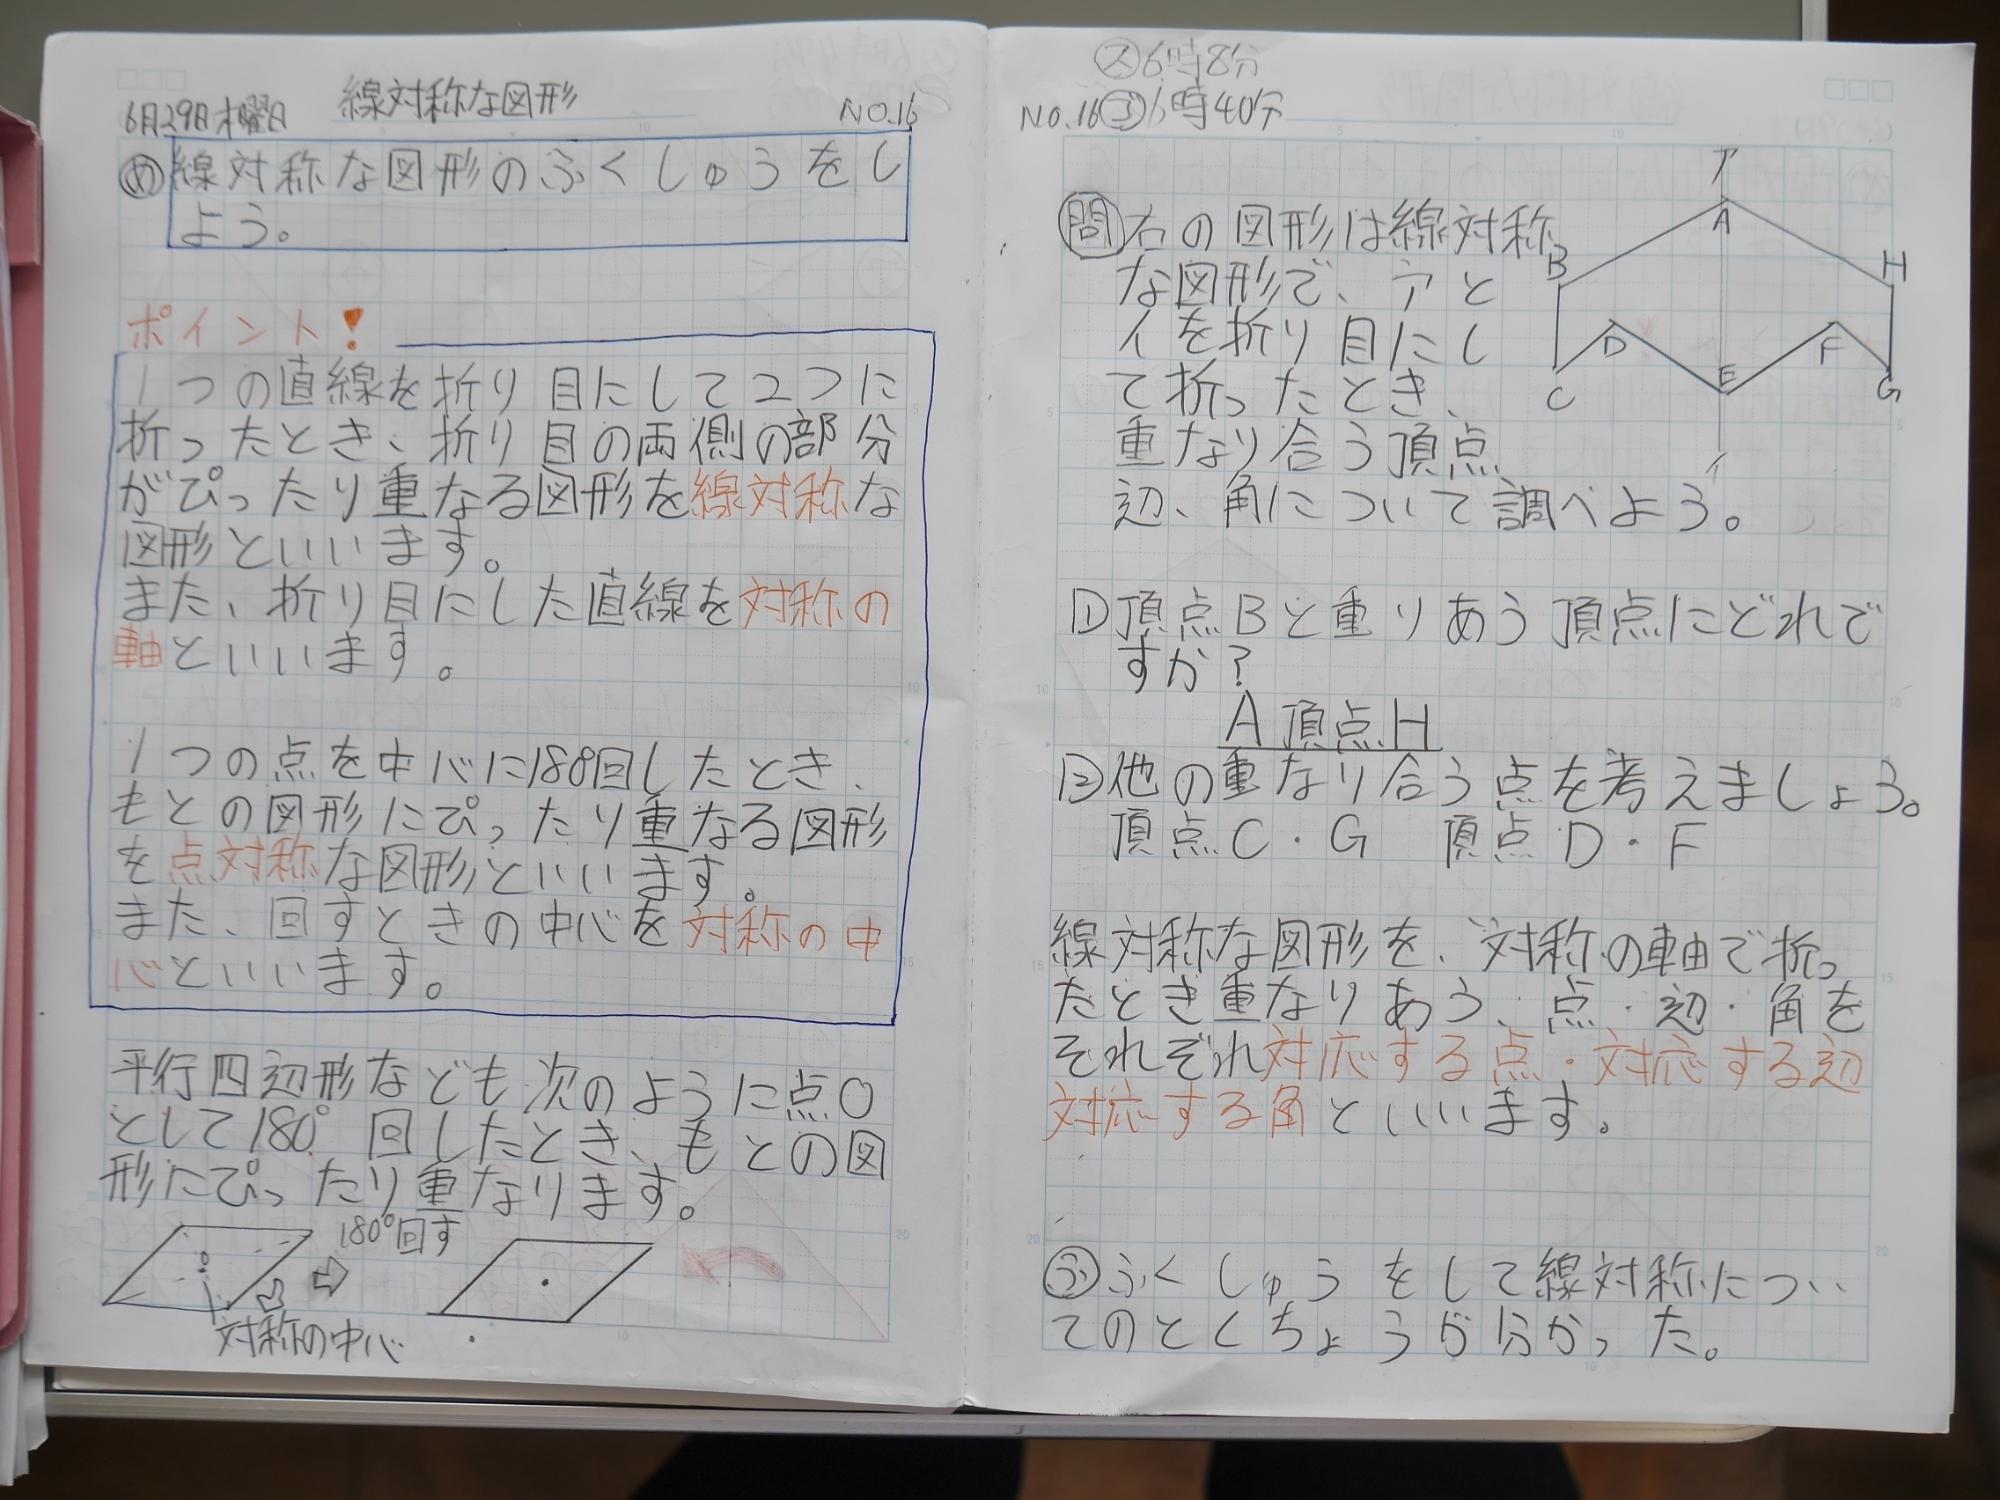 6月29日木曜日 線対称な図形 NO.16
め 線対称な図形のふくしゅうをし
よう。
ポイント!
1つの直線を折り目にして2つに
折ったとき、折り目の両側の部分
がぴったり重なる図形を線対称な
図形といいます。
また、折り目にした直線を対称の
軸といいます。
1つの点を中心に180回したとき、
もとの図形にぴったり重なる図形
を点対称な図形といいます。
また、回すときの中心を対称の中
心といいます。
平行四辺形なども次のように点O
として180°回したとき、もとの図
形にぴったり重なります。
180°回す
対称の中心
ス6時8分
NO.16 ゴ6時40分
問 右の図形は線対称
な図形で、アと
イを折り目にし
て折ったとき、
重なり合う頂点
辺、角について調べよう。
ア
A
B
H
D
F
E
C
G
イ
① 頂点Bと重りあう頂点にどれで
すか?
A 頂点H
② 他の重なり合う点を考えましょう。
頂点C・G 頂点D・F
線対称な図形を、対称の軸で折っ
たとき重なりあう、点・辺・角を
それぞれ対応する点・対応する辺
対応する角といいます。
ふ ふくしゅうをして線対称につい
てのとくちょうが分かった。